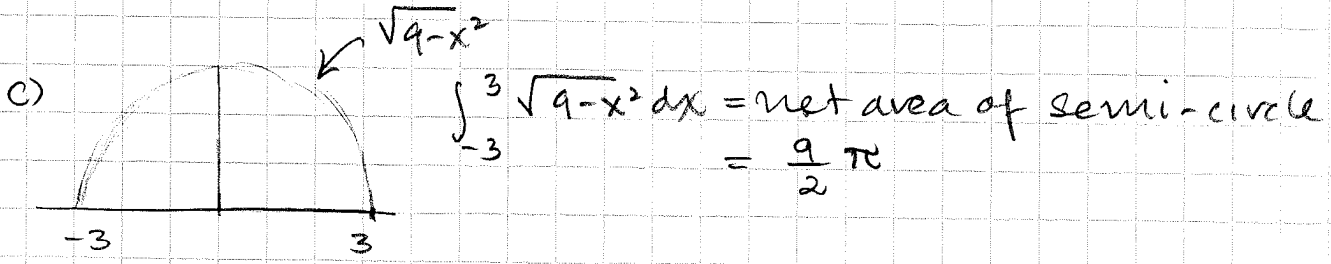 √9-x²
c) ∫₋₃³ √9-x² dx = net area of semi-circle
= 9/2 π
-3 3